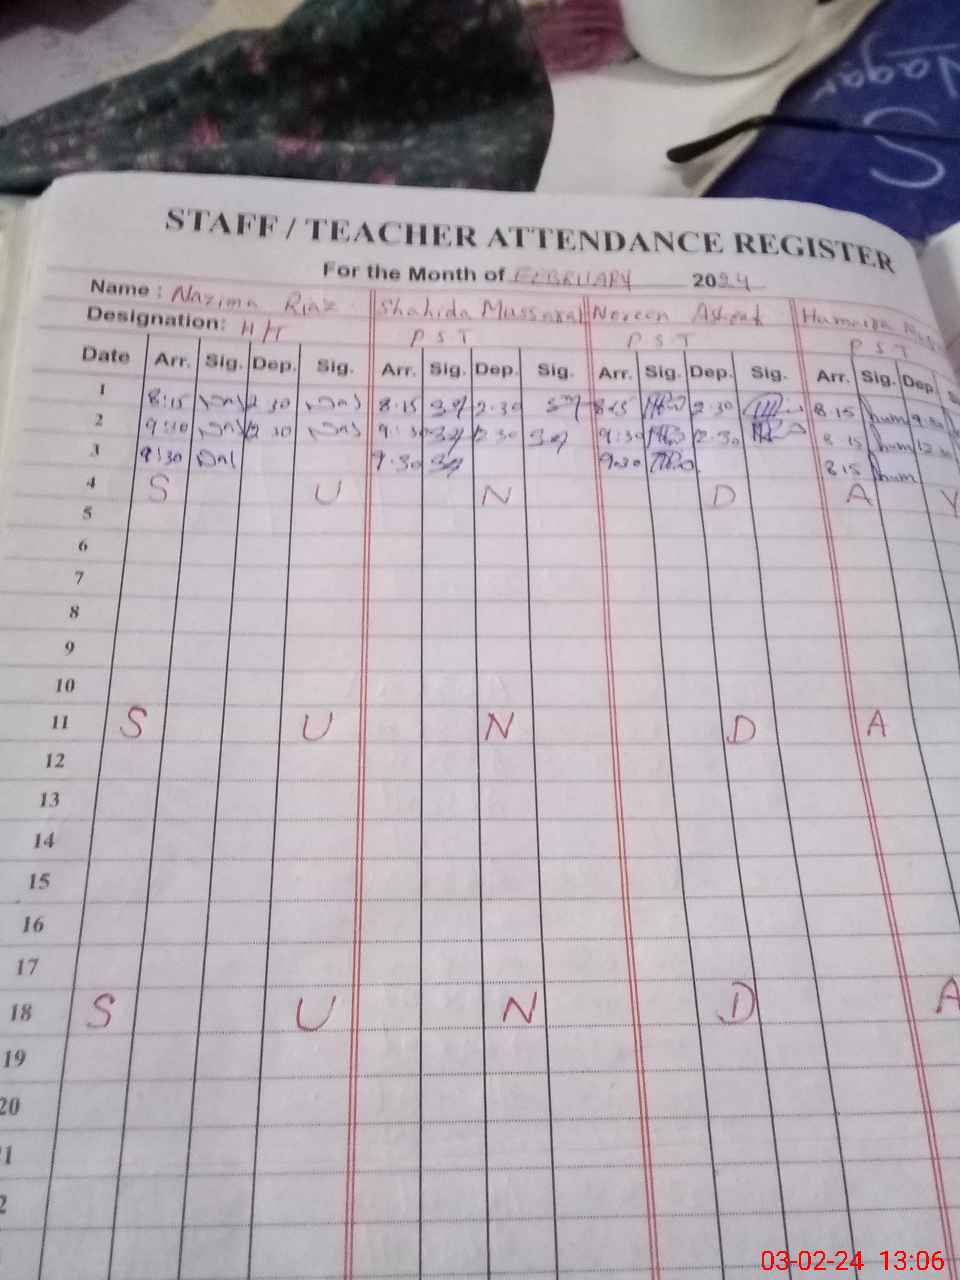 Nagar
STAFF / TEACHER ATTENDANCE REGISTER
For the Month of FEBRUARY 2024
Name : Nazima Riaz Shahida Mussarat Noreen Ashraf Humaira
Designation: H/T P S T P S T P S T
Date Arr. Sig. Dep. Sig. Arr. Sig. Dep. Sig. Arr. Sig. Dep. Sig. Arr. Sig. Dep. S
1 8:15 2 30 8.15 2.30 8.15 2.30 8.15 hum
2 9:30 2 30 9.30 2 30 9:30 2.30 8 15 hum 12.30
3 9:30 9.30 9.30 8 15 hum
4 S U N D A Y
5
6
7
8
9
10
11 S U N D A
12
13
14
15
16
17
18 S U N D A
19
20
1
2
03-02-24 13:06